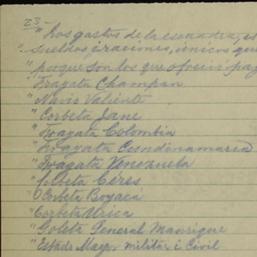 23-
" Los gastos de la escuadra, es
" sueldos i raciones, únicos que
" porque son los que ofreció pag
" Fragata Champan
" Navio Valiente
" Corbeta Jane
" Fragata Colombia
" Fragata Cundinamarca
" Fragata Venezuela
" Corbeta Ceres
" Corbeta Boyacá
" Corbeta Urica
" Goleta General Manrique
" Estado Mayor militar i Civil